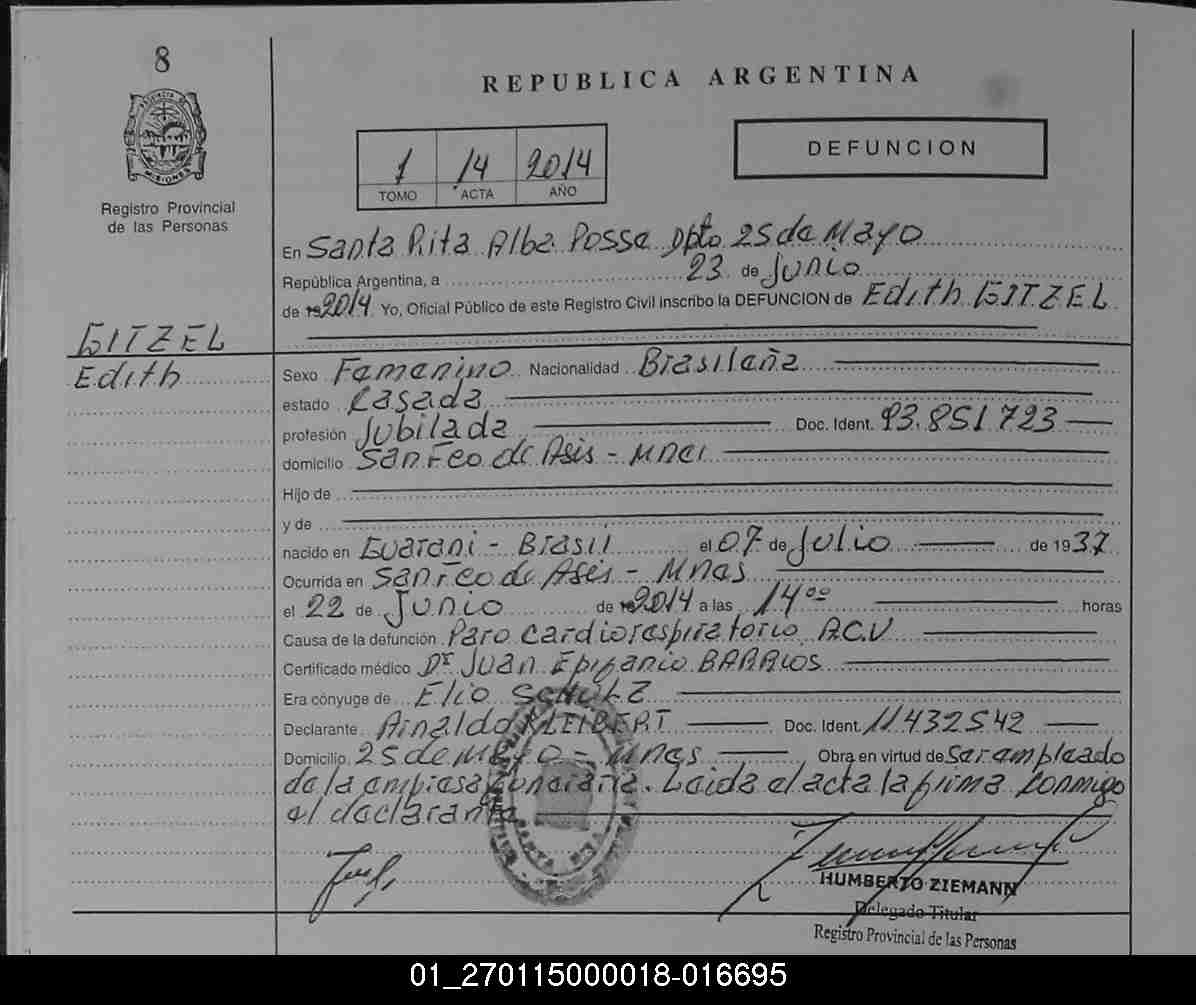 8
REPUBLICA ARGENTINA
PROVINCIA DE
MISIONES
Registro Provincial
de las Personas
1 14 2014
TOMO ACTA AÑO
DEFUNCION
En Santa Rita Alba Posse Dpto 25 de Mayo
República Argentina, a 23 de Junio
de 2014 Yo, Oficial Público de este Registro Civil inscribo la DEFUNCION de Edith GITZEL
GITZEL
Edith
Sexo Femenino Nacionalidad Brasileña
estado Casada
profesión Jubilada Doc. Ident. 93.851723
domicilio San Fco de Asis - Mnes
Hijo de
y de
nacido en Guarani - Brasil el 07 de Julio de 1937
Ocurrida en San Fco de Asis - Mnes
el 22 de Junio de 2014 a las 14 00 horas
Causa de la defunción Paro cardiorespiratorio A.C.V
Certificado médico Dr Juan Epifanio BARRIOS
Era cónyuge de Elio SCHULZ
Declarante Arnaldo KLEIBERT Doc. Ident. 11432542
Domicilio 25 de Mayo - Mnes Obra en virtud de Ser empleado
de la empresa funeraria. Leida el acta la firma conmigo
el declarante
SANTA RITA
HUMBERTO ZIEMANN
Delegado Titular
Registro Provincial de las Personas
01_270115000018-016695